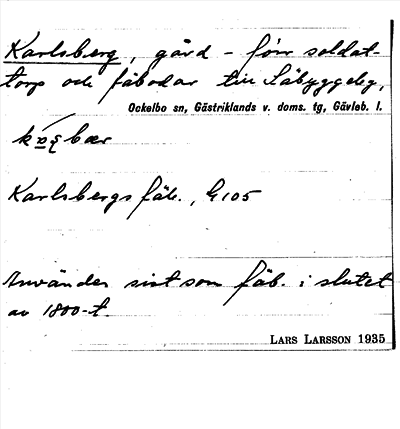 Karlsberg, gård – förr soldat-
torp och fäbodar till Säbyggeby,
Ockelbo sn, Gästriklands v. doms. tg, Gävleb. l.
bær
Karlsbergs fäb., G 105
Användes sist som fäb. i slutet
av 1800-t.
LARS LARSSON 1935